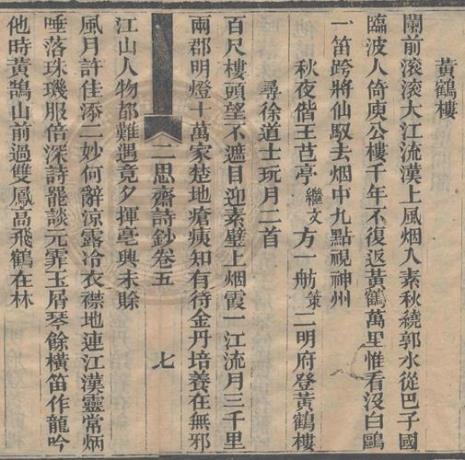 黃鶴樓
闌前滚滚大江流漢上風烟人素秋繞郭水從巴子國
臨波人倚庾公樓千年不復返黃鶴萬里惟看沒白鷗
一笛跨將仙馭去烟中九點視神州
秋夜偕王芑亭繼文方一舫策二明府登黃鶴樓
尋徐道士玩月二首
百尺樓頭望不遮目迎素壁上烟霞一江流月三千里
兩郡明燈十萬家楚地瘡痍知有待金丹培養在無邪
二思齋詩鈔卷五
七
江山人物都難遇竟夕揮毫興未賒
風月許佳添二妙何辭涼露冷衣襟地連江漢靈常炳
唾落珠璣服倍深詩罷談元霏玉屑琴餘橫笛作龍吟
他時黃鵠山前過雙鳳高飛鶴在林